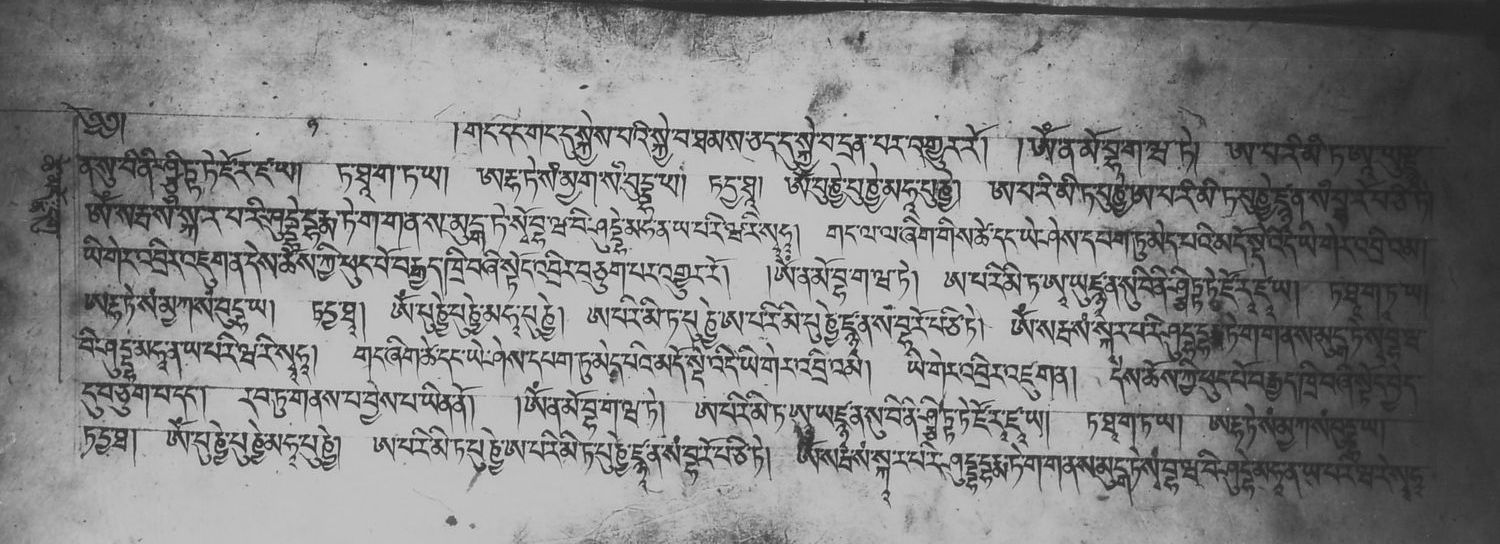 ༄༅། །གང་དང་གང་དུ་སྐྱེས་པའི་སྐྱེ་བ་ཐམས་ཅད་དུ་སྐྱེ་བ་དྲན་པར་འགྱུར་རོ། །ཨོཾ་ན་མོ་བྷ་ག་ཝ་ཏེ། ཨ་པ་རི་མི་ཏ་ཨཱ་ཡུརྫྙཱ
ན་སུ་བི་ནི་ཤྩི་ཏ་ཏེ་ཛོ་རཱ་ཛཱ་ཡ། ཏ་ཐཱ་ག་ཏ་ཡ། ཨརྷ་ཏེ་སཾ་མྱག་སཾ་བུདྡྷ་ཡ། ཏདྱ་ཐཱ། ཨོཾ་པུཎྱེ་པུཎྱེ་མ་ཧཱ་པུཎྱེ། ཨ་པ་རི་མི་ཏ་པུཎྱེ་ཨ་པ་རི་མི་ཏ་པུཎྱེ་ཛྙཱན་སཾ་བྷཱ་རོ་པ་ཙི་ཏེ།
ཨོཾ་སརྦ་སཾ་སྐཱ་ར་པ་རི་ཤུདྡྷེ་དྷརྨ་ཏེ་ག་ག་ན་ས་མུདྒ་ཏེ་སྭ་བྷ་ཝ་བི་ཤུདྡྷེ་མ་ཧཱ་ན་ཡ་པ་རི་ཝ་རི་སྭཱཧཱ། གང་ལ་ལ་ཞིག་གིས་ཚེ་དང་ཡེ་ཤེས་དཔག་ཏུ་མེད་པའི་མདོ་སྡེ་འདི་ཡི་གེར་འབྲི་འམ།
ཡི་གེར་འབྲིར་འཇུག་ན་དེས་ཆོས་ཀྱི་ཕུང་པོ་བརྒྱད་ཁྲི་བཞི་སྟོང་འབྲིར་བཅུག་པར་འགྱུར་རོ། །ཨོཾ་ན་མོ་བྷ་ག་ཝ་ཏེ། ཨ་པ་རི་མི་ཏ་ཨཱ་ཡུརྫྙཱན་སུ་བི་ནི་ཤྩི་ཏ་ཏེ་ཛོ་རཱ་ཛཱ་ཡ། ཏ་ཐཱ་ག་ཏ་ཡ།
ཨརྷ་ཏེ་སཾ་མྱཀ་སཾ་བུདྡྷ་ཡ། ཏདྱ་ཐཱ། ཨོཾ་པུཎྱེ་པུཎྱེ་མ་ཧཱ་པུཎྱེ། ཨ་པ་རི་མི་ཏ་པུཎྱེ་ཨ་པ་རི་མི་པུཎྱེ་ཛྙཱན་སཾ་བྷཱ་རོ་པ་ཙི་ཏེ། ཨོཾ་སརྦ་སཾ་སྐཱ་ར་པ་རི་ཤུདྡྷ་དྷརྨ་ཏེ་ག་ག་ན་ས་མུདྒ་ཏེ་སྭ་བྷ་ཝ
བི་ཤུདྡྷེ་མ་ཧཱ་ན་ཡ་པ་རི་ཝ་རི་སྭཱཧཱ། གང་ཞིག་ཚེ་དང་ཡེ་ཤེས་དཔག་ཏུ་མེད་པའི་མདོ་སྡེ་འདི་ཡི་གེར་འབྲི་འམ། ཡི་གེར་འབྲིར་འཇུག་ན། དེས་ཆོས་ཀྱི་ཕུང་པོ་བརྒྱད་ཁྲི་བཞི་སྟོང་བྱེད་
དུ་བཅུག་པ་དང་། རབ་ཏུ་གནས་པ་བྱེས་པ་ཡིན་ནོ། །ཨོཾ་ན་མོ་བྷ་ག་ཝ་ཏེ། ཨ་པ་རི་མི་ཏ་ཨཱ་ཡུརྫྙཱན་སུ་བི་ནི་ཤྩི་ཏ་ཏེ་ཛོ་རཱ་ཛཱ་ཡ། ཏ་ཐཱ་ག་ཏ་ཡ། ཨརྷ་ཏེ་སཾ་མྱཀ་སཾ་བུདྡྷ་ཡ།
ཏདྱ་ཐཱ། ཨོཾ་པུཎྱེ་པུཎྱེ་མ་ཧཱ་པུཎྱེ། ཨ་པ་རི་མི་ཏ་པུཎྱེ་ཨ་པ་རི་མི་ཏ་པུཎྱེ་ཛྙཱན་སཾ་བྷཱ་རོ་པ་ཙི་ཏེ། ཨོཾ་སརྦ་སཾ་སྐཱ་ར་པ་རི་ཤུདྡྷ་དྷརྨ་ཏེ་ག་ག་ན་ས་མུདྒ་ཏེ་སྭ་བྷ་ཝ་བི་ཤུདྡྷེ་མ་ཧཱ་ན་ཡ་པ་རི་ཝ་རི་སྭཱཧཱ